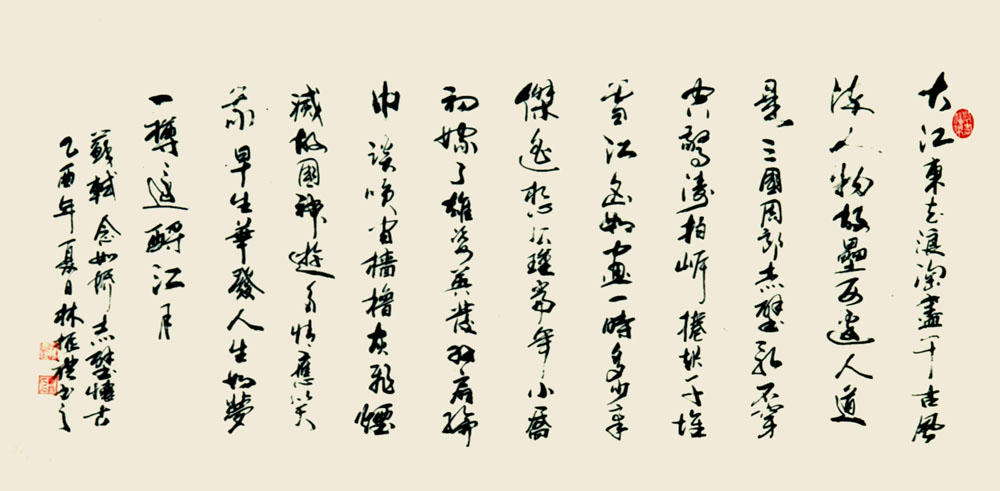 大江東去浪淘盡千古風
流人物故壘西邊人道
是三國周郎赤壁亂石穿
空驚濤拍岸捲起千堆
雪江山如畫一時多少豪
傑遙想公瑾當年小喬
初嫁了雄姿英發羽扇綸
巾談笑間檣櫓灰飛煙
滅故國神遊多情應笑
我早生華發人生如夢
一樽還酹江月
蘇軾念奴嬌赤壁懷古
乙酉年夏日林振禮书之